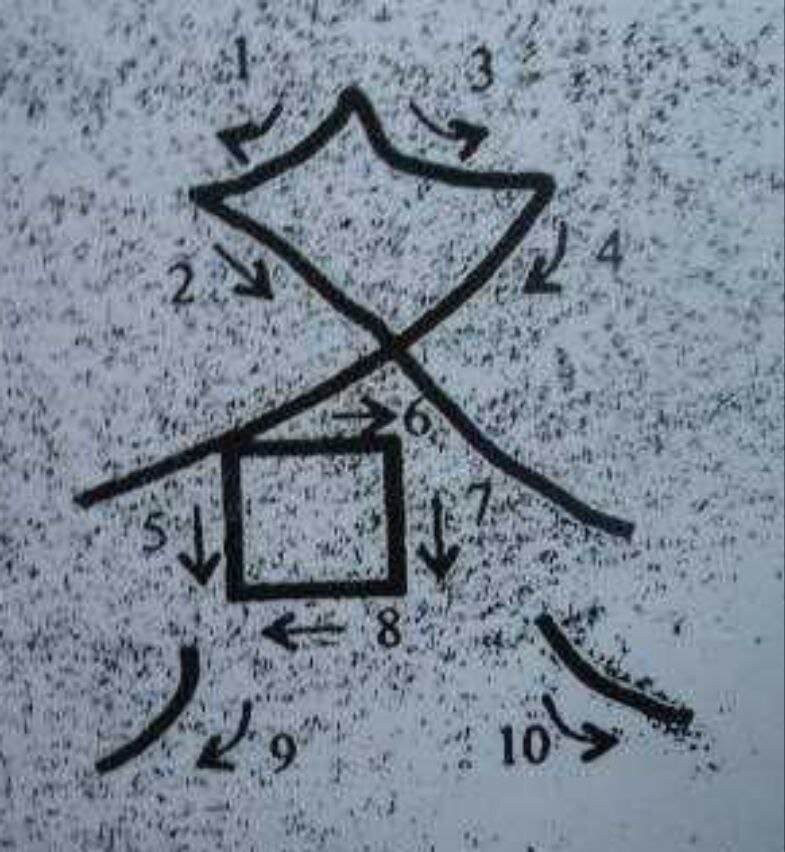 1
3
2
4
6
5
7
8
9
10